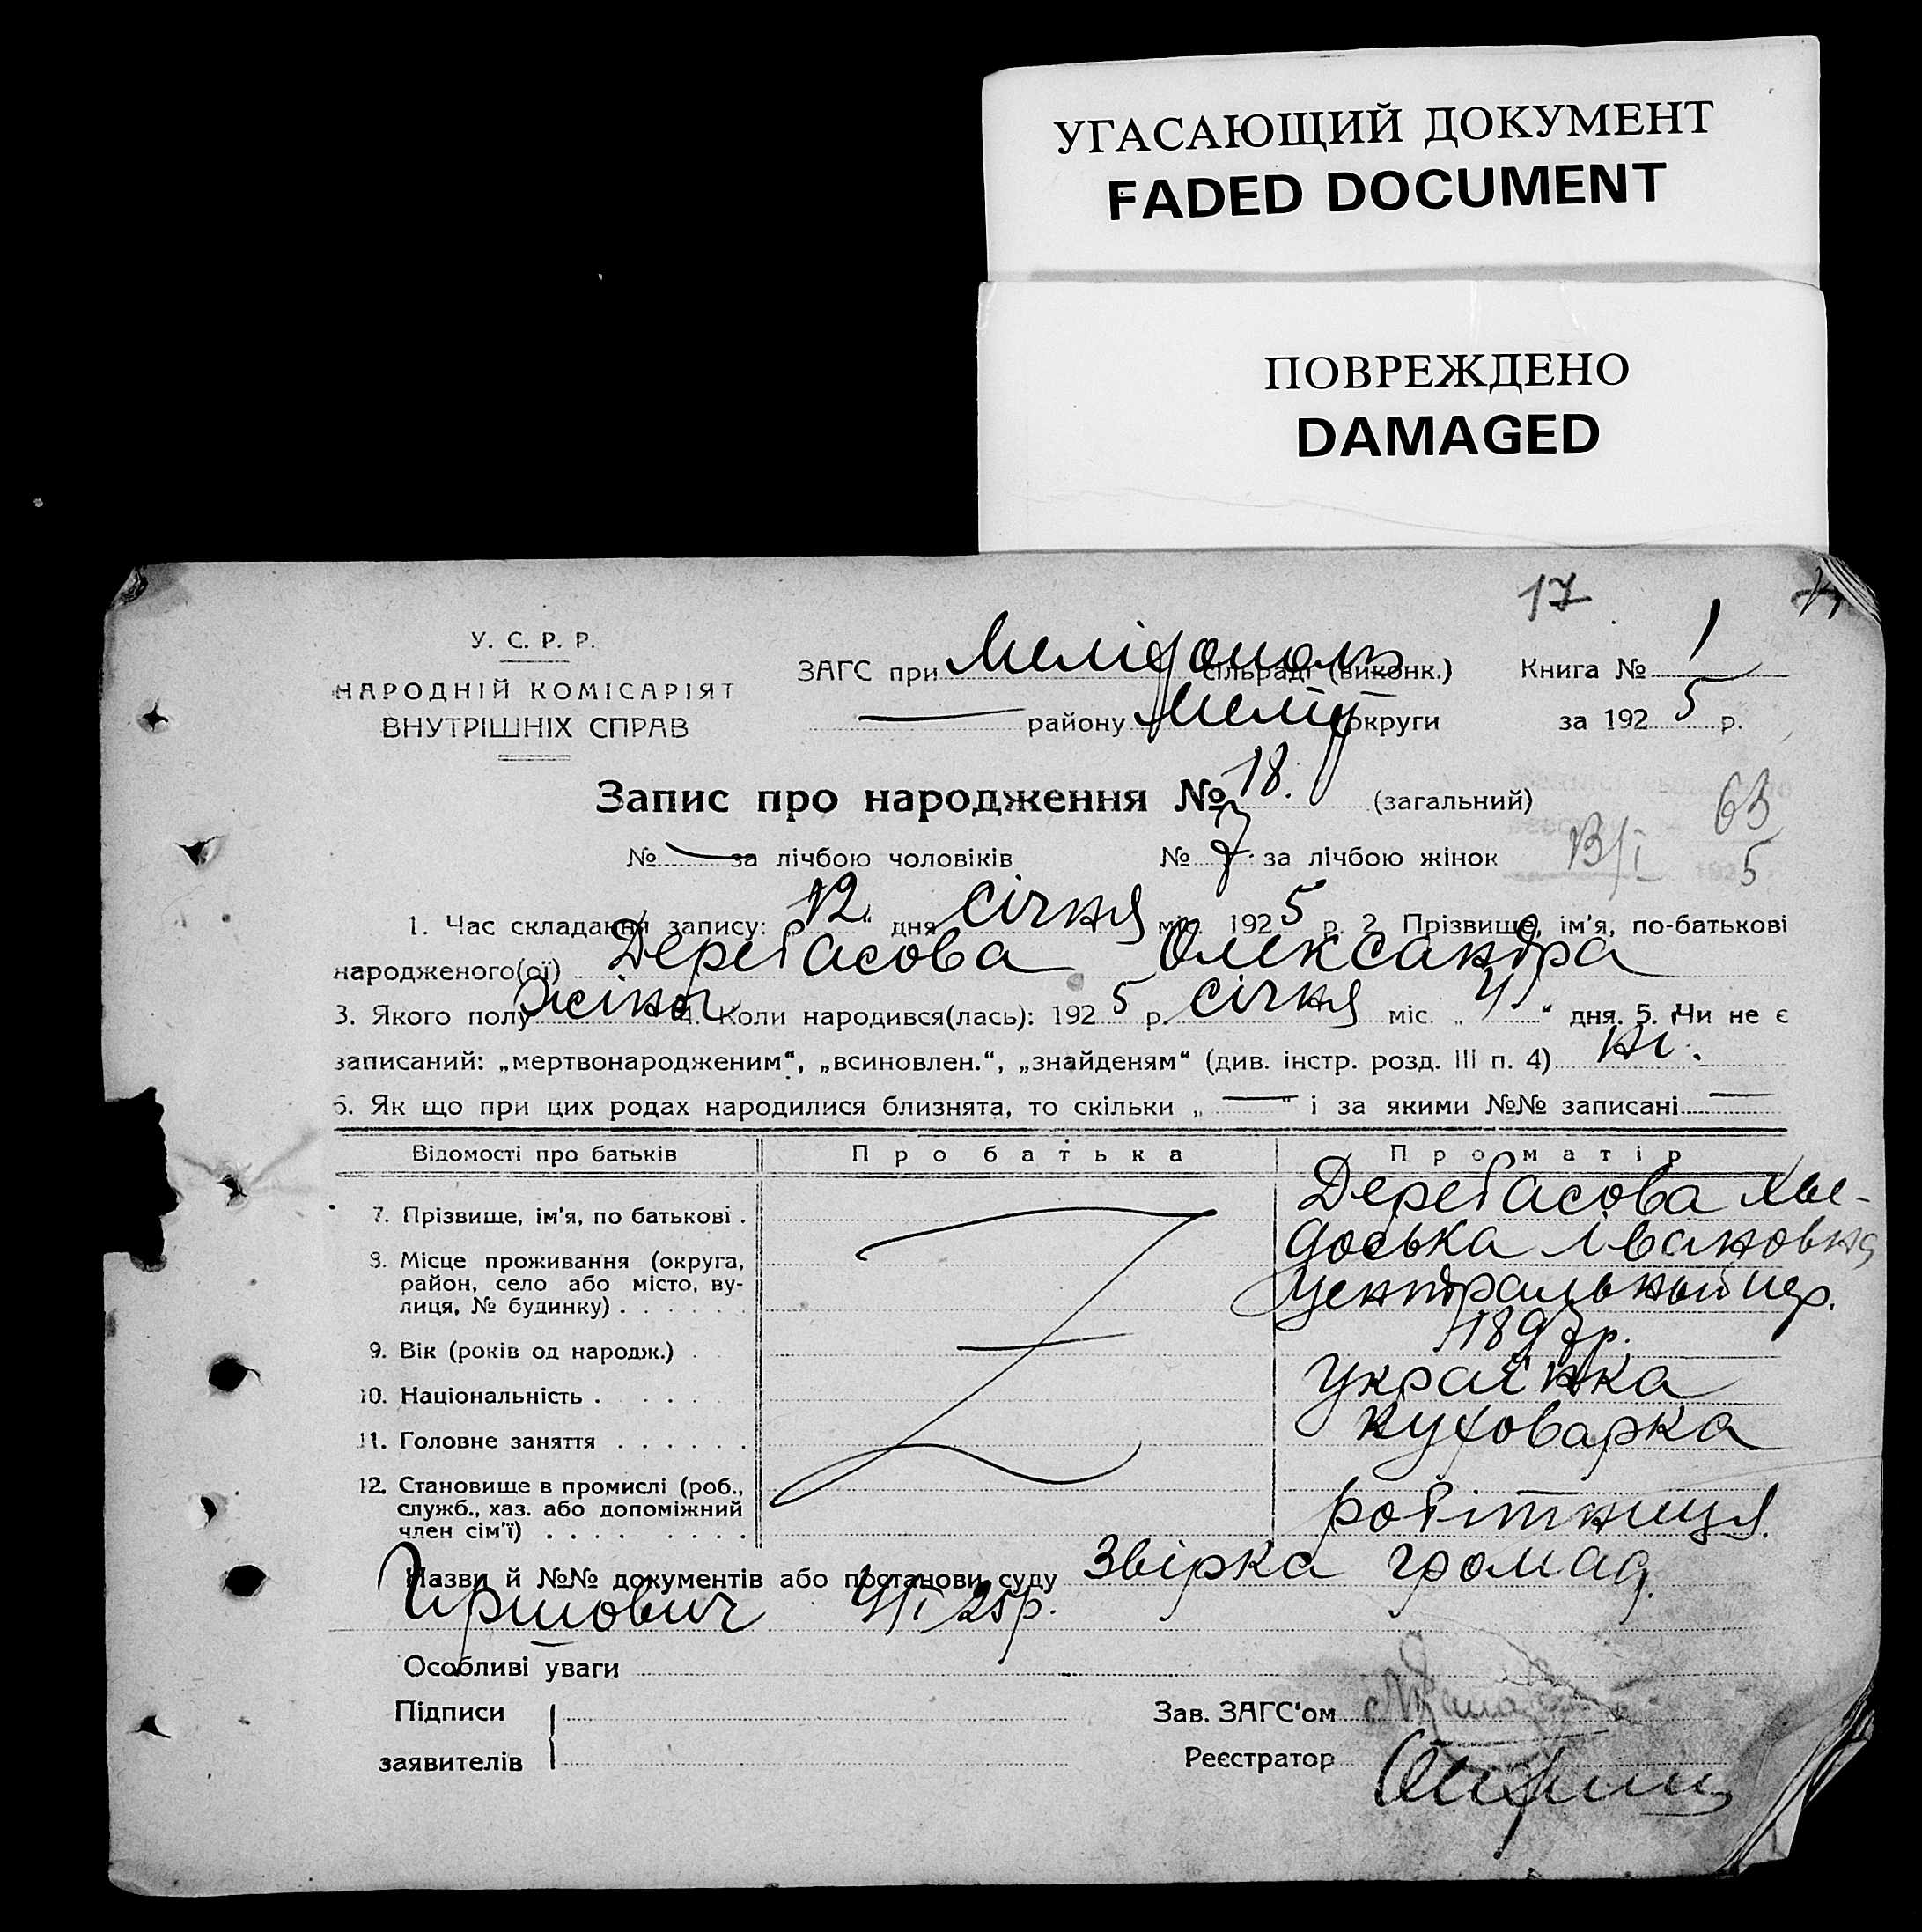 УГАСАЮЩИЙ ДОКУМЕНТ
FADED DOCUMENT
ПОВРЕЖДЕНО
DAMAGED
17
У. С. Р. Р.
НАРОДНІЙ КОМІСАРІЯТ
ВНУТРІШНІХ СПРАВ
ЗАГС при Мелітополь сільраді (виконк.) Книга № 1
— району Меліт округи за 1925 р.
Запис про народження № 18. (загальний)
63
№ — за лічбою чоловіків № 7. за лічбою жінок
5
1. Час складання запису: „12“ дня січня міс. 1925 р. 2. Прізвище, ім'я, по-батькові
народженого(ої) Деребасова Олександра
3. Якого полу жіноч. 4. Коли народився(лась): 1925 р. січня міс. „4“ дня. 5. Чи не є
записаний: „мертвонародженим“, „всиновлен.“, „знайденям“ (див. інстр. розд. III п. 4) ні.
6. Як що при цих родах народилися близнята, то скільки „—“ і за якими №№ записані —
Відомості про батьків Про батька Про матір
7. Прізвище, ім'я, по батькові . Деребасова Хве-
доська Івановна
8. Місце проживання (округа,
район, село або місто, ву-
лиця, № будинку) . . . . . . Центральный пер.
9. Вік (років од народж.) . — 1897 р.
10. Національність . . . . . українка
11. Головне заняття . . . . . . куховарка
12. Становище в промислі (роб.,
служб., хаз. або допоміжний
член сім'ї) . . . . . . . . робітниця.
Назви й №№ документів або постанови суду Звірка громад.
4/I 25 р.
Особливі уваги
Підписи
заявителів
Зав. ЗАГС'ом
Реєстратор